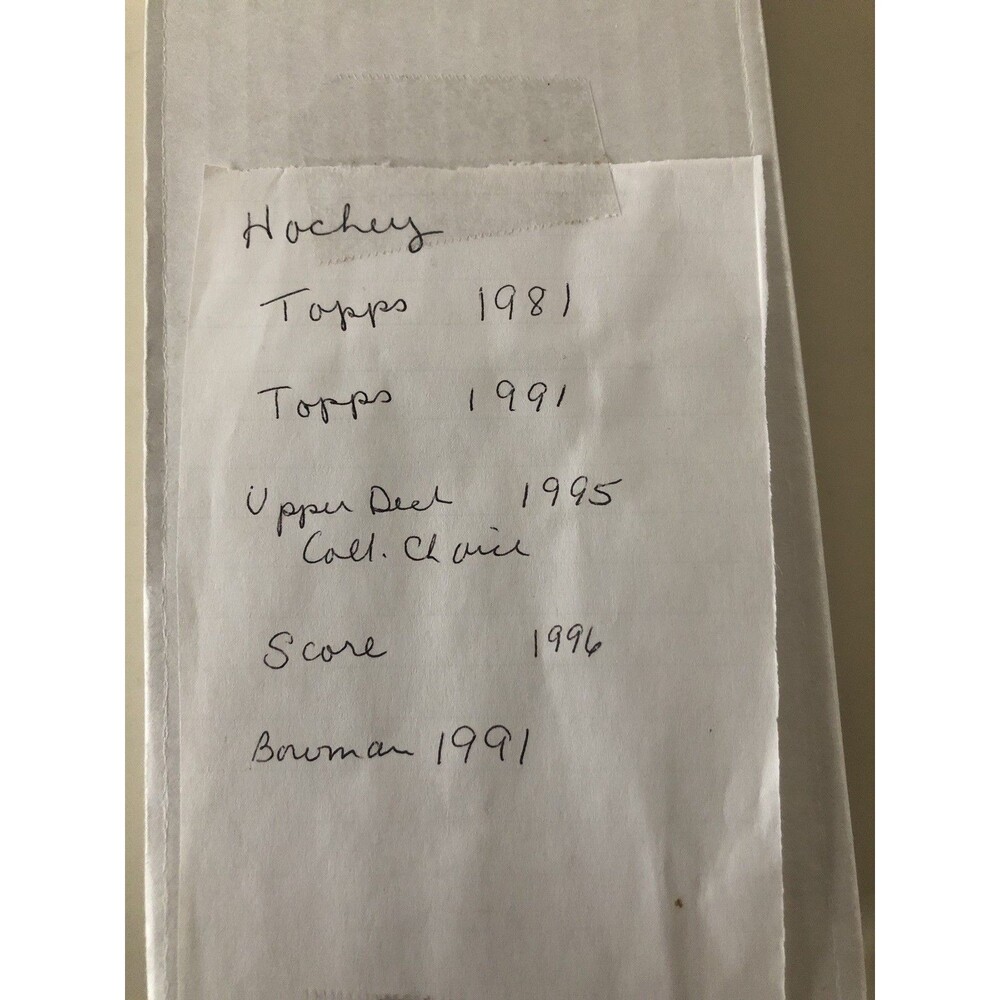 Hockey
Topps 1981
Topps 1991
Upper Deck 1995
Coll. Choice
Score 1996
Bowman 1991